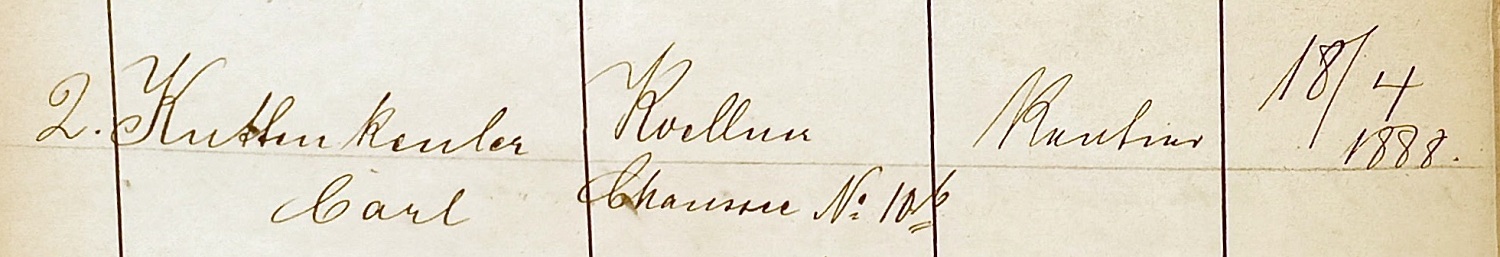 2. Kuttenkeuler Koellner Rentier 18/4
1888.
Carl Chaussee No 10b